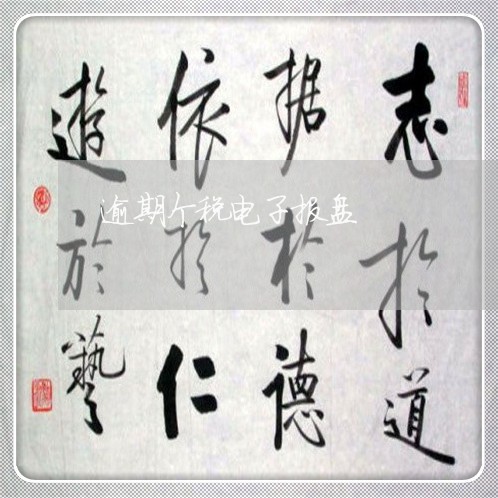 志於道
据於德
依於仁
遊於藝
逾期个税电子报盘